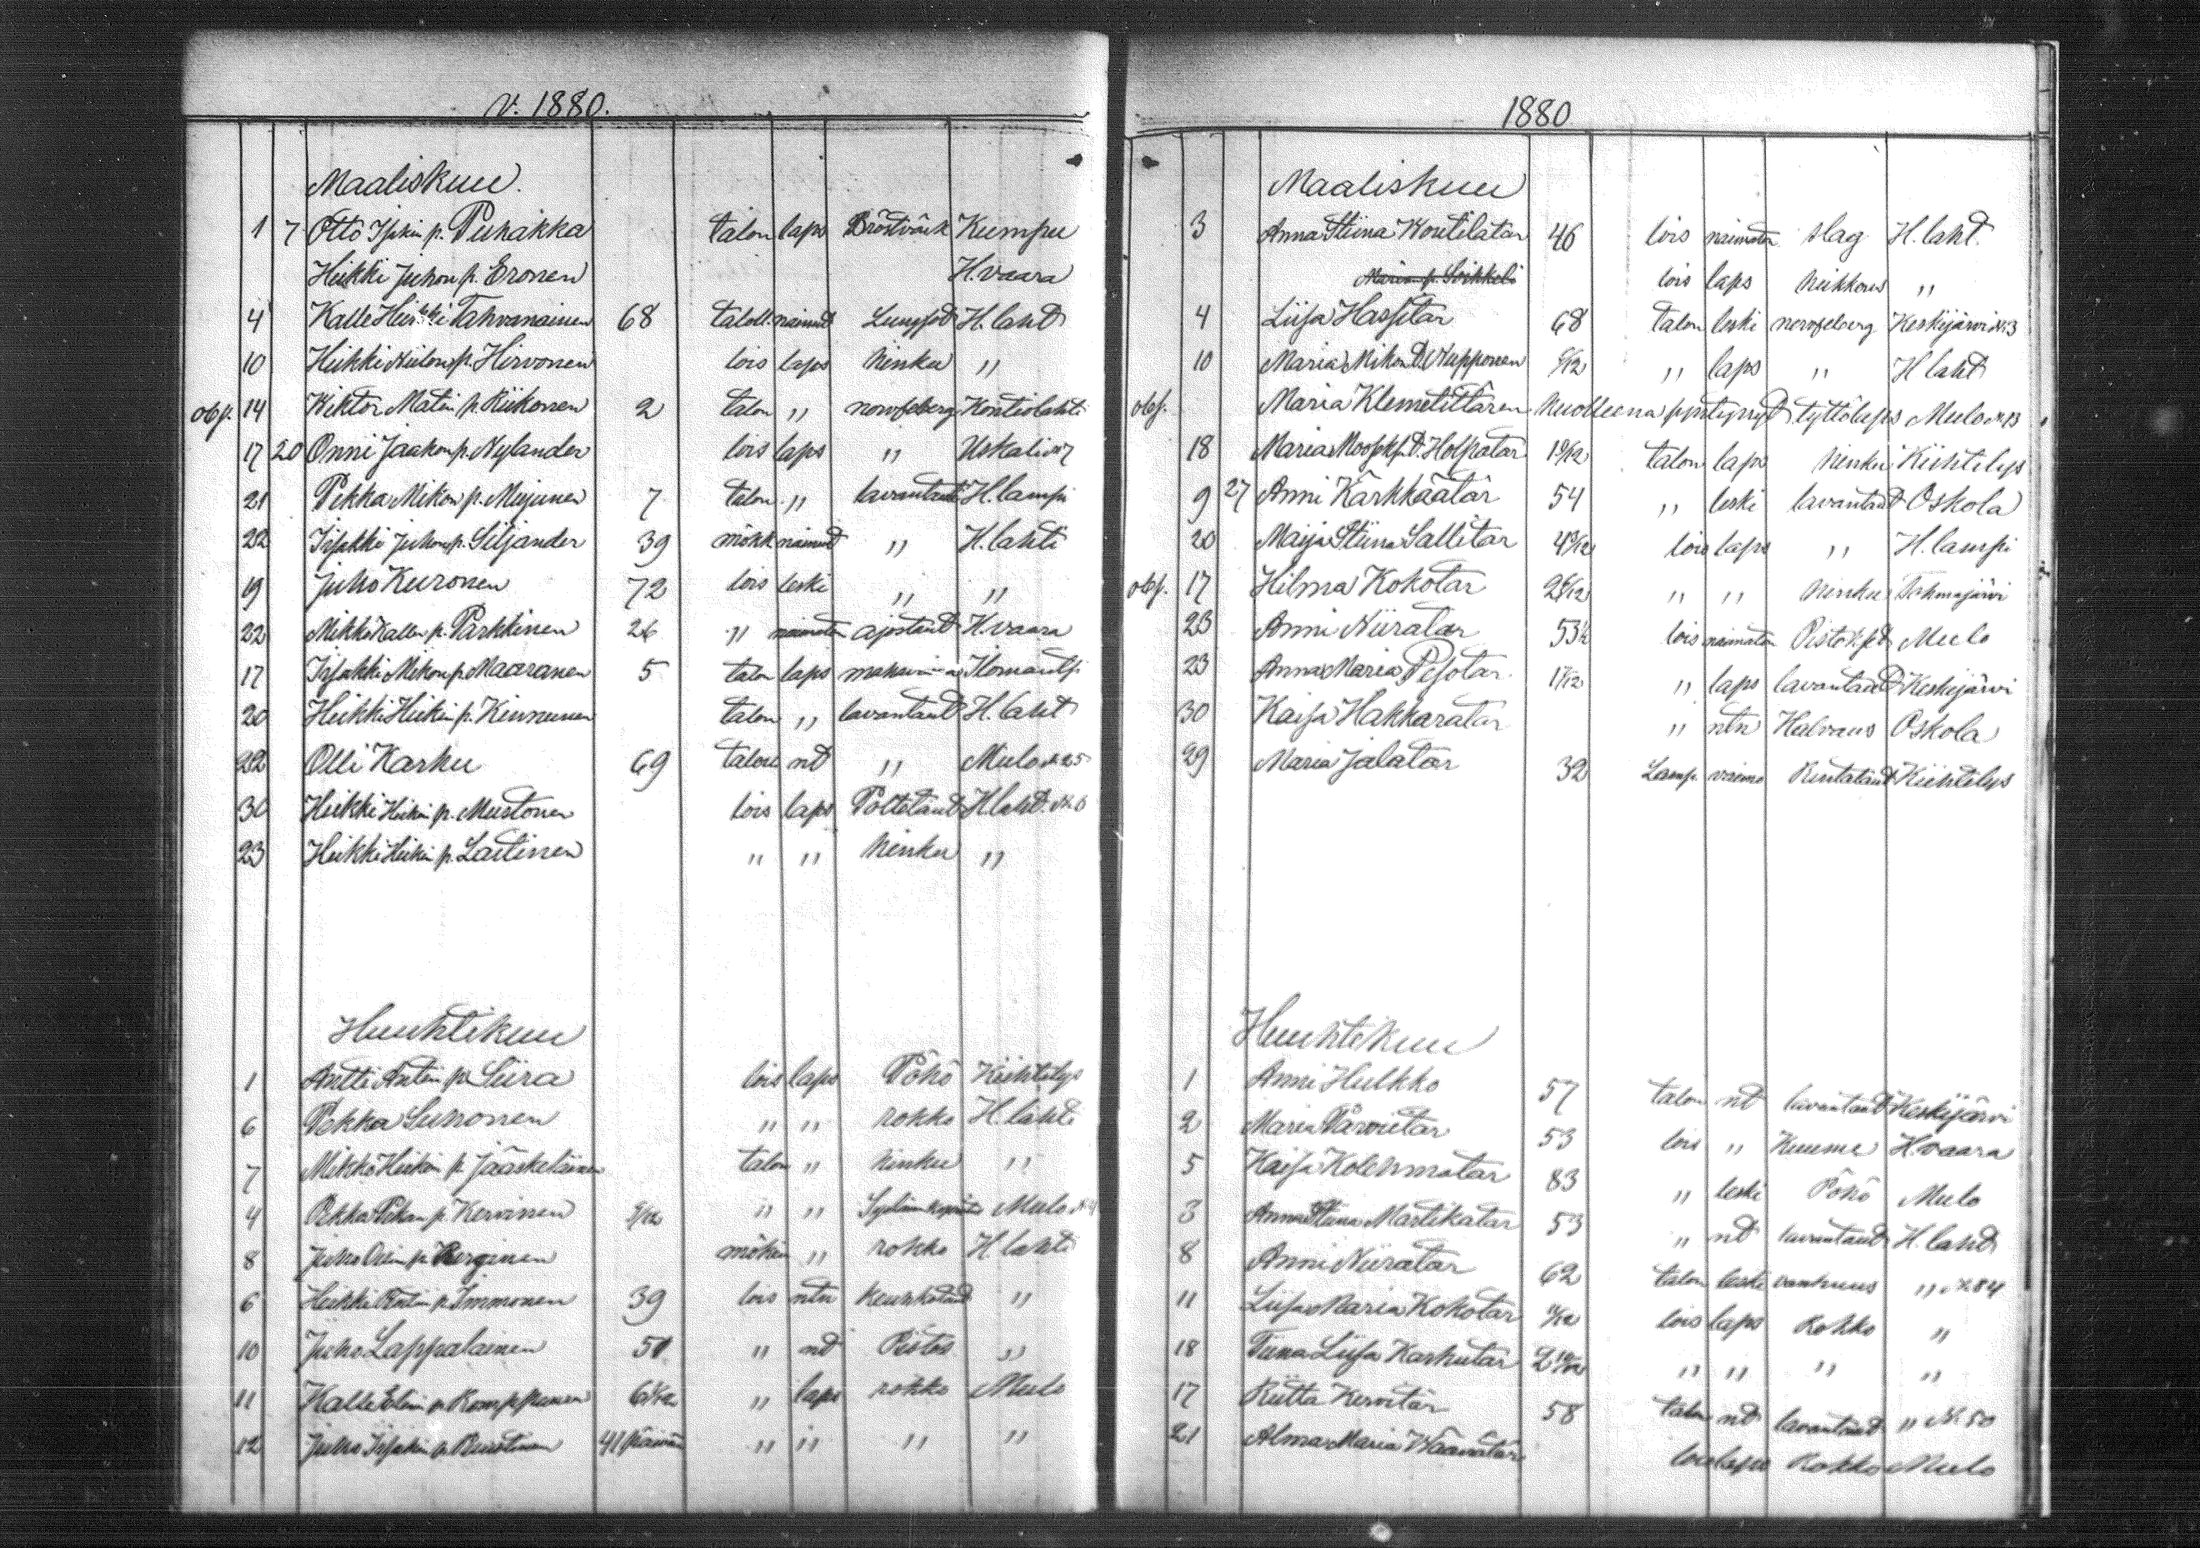 V. 1880.
Maaliskuu.
1 7 Otto Isakin p. Puhakka talon laps Bröstvärk Kumpu
Heikki Juhon p. Eronen H.vaara
4 Kalle Heikki Tahvanainen 68 taloll. nainut Lungsot H. laht
10 Heikki Niilon p. Hirvonen lois laps hinku "
obs. 14 Wiktor Matin p. Riikonen 2 talon " nervfeberg Kontiolahti
17 20 Onni Jaakon p. Nylander lois laps " Uskali
21 Pekka Mikon p. Mujunen 7 talon " lavantaut H. lampi
22 Isakki Juhon p. Siljander 39 mökk nainut " H. lahti
19 Juho Kuronen 72 lois leski " "
22 Mikko Kallen p. Parkkinen 26 " naimaton ajostaut H. vaara
17 Isakki Mikon p. Maaranen 5 talon laps Ilomants
20 Heikki Heikin p. Kinnunen talon " lavantaut H. laht
22 Olli Karku 69 talon nt " Mulo N. 25
30 Heikki Heikin p. Mustonen lois laps Polttotaut H. laht. N. 6
23 Heikki Heikin p. Laitinen " " hinku "
Huuhtikuu
1 Antti Antin p. Siira lois laps Pöhö Kiihtelys
6 Pekka Suhonen " " rokko H. lahti
7 Mikko Heikin p. Jääskeläinen talon " hinku "
4 Pekka Pekan p. Kervinen " " Mulo
8 Juho Ollin p. mökin " rokko H lahti
6 Heikki Antin p. Immonen 39 lois ntn keuhkotaut "
10 Juho Lappalainen 51 " nt Pistos "
11 Kalle Elian p. Komppunen " laps rokko Mulo
12 Juho Isakin p. 41 päivän " " " "
1880
Maaliskuu
3 Anna Stiina Woutilatar 46 lois naimaton slag H. laht.
Maria p. Soikkeli lois laps heikkous "
4 Liisa Hassitar 68 talon leski nervfeberg Keskijärvi N. 3
10 Maria Mikon t. Nupponen " laps " H laht
obs. Maria Klemetittären kuolleena syntynyt tyttölaps Mulo N. 13
18 Maria t. Holpatar 1 talon laps hinku Kiihtelys
9 27 Anni Kärkkäätär 54 " leski lavantaut Oskola
20 Maija Stiina Sallitar lois laps " H. lampi
obs. 17 Hilma Kokotar " " hinku Tohmajärvi
23 Anni Niiratar 53½ lois naimaton Pistoksd Mulo
23 Anna Maria Pesotar " laps lavantaut Keskijärvi
30 Kaisa Hakkaratar " ntn Halvaus Oskola
29 Maria Jalatar 32 Lamp. vaimo Rintataut Kiihtelys
Huuhtikuu
1 Anni Hulkko 57 talon nt lavantaut Keskijärvi
2 Maria Parvietar 53 lois " Kuume H. vaara
5 Kaisa Kolehmatar 83 " leski Pöhö Mulo
3 Anna Stiina Martikatar 53 " nt lavantaut H. laht
8 Anni Niiratar 62 talon leski vanhuus " N. 84
11 Liisa Maria Kokotar lois laps Rokko "
18 Tiina Liisa Karkutar 2 " " " "
17 Riitta Kervitär 58 talon nt lavantaut " N. 50
21 Alma Maria Wäänätär lois laps Rokko Mulo